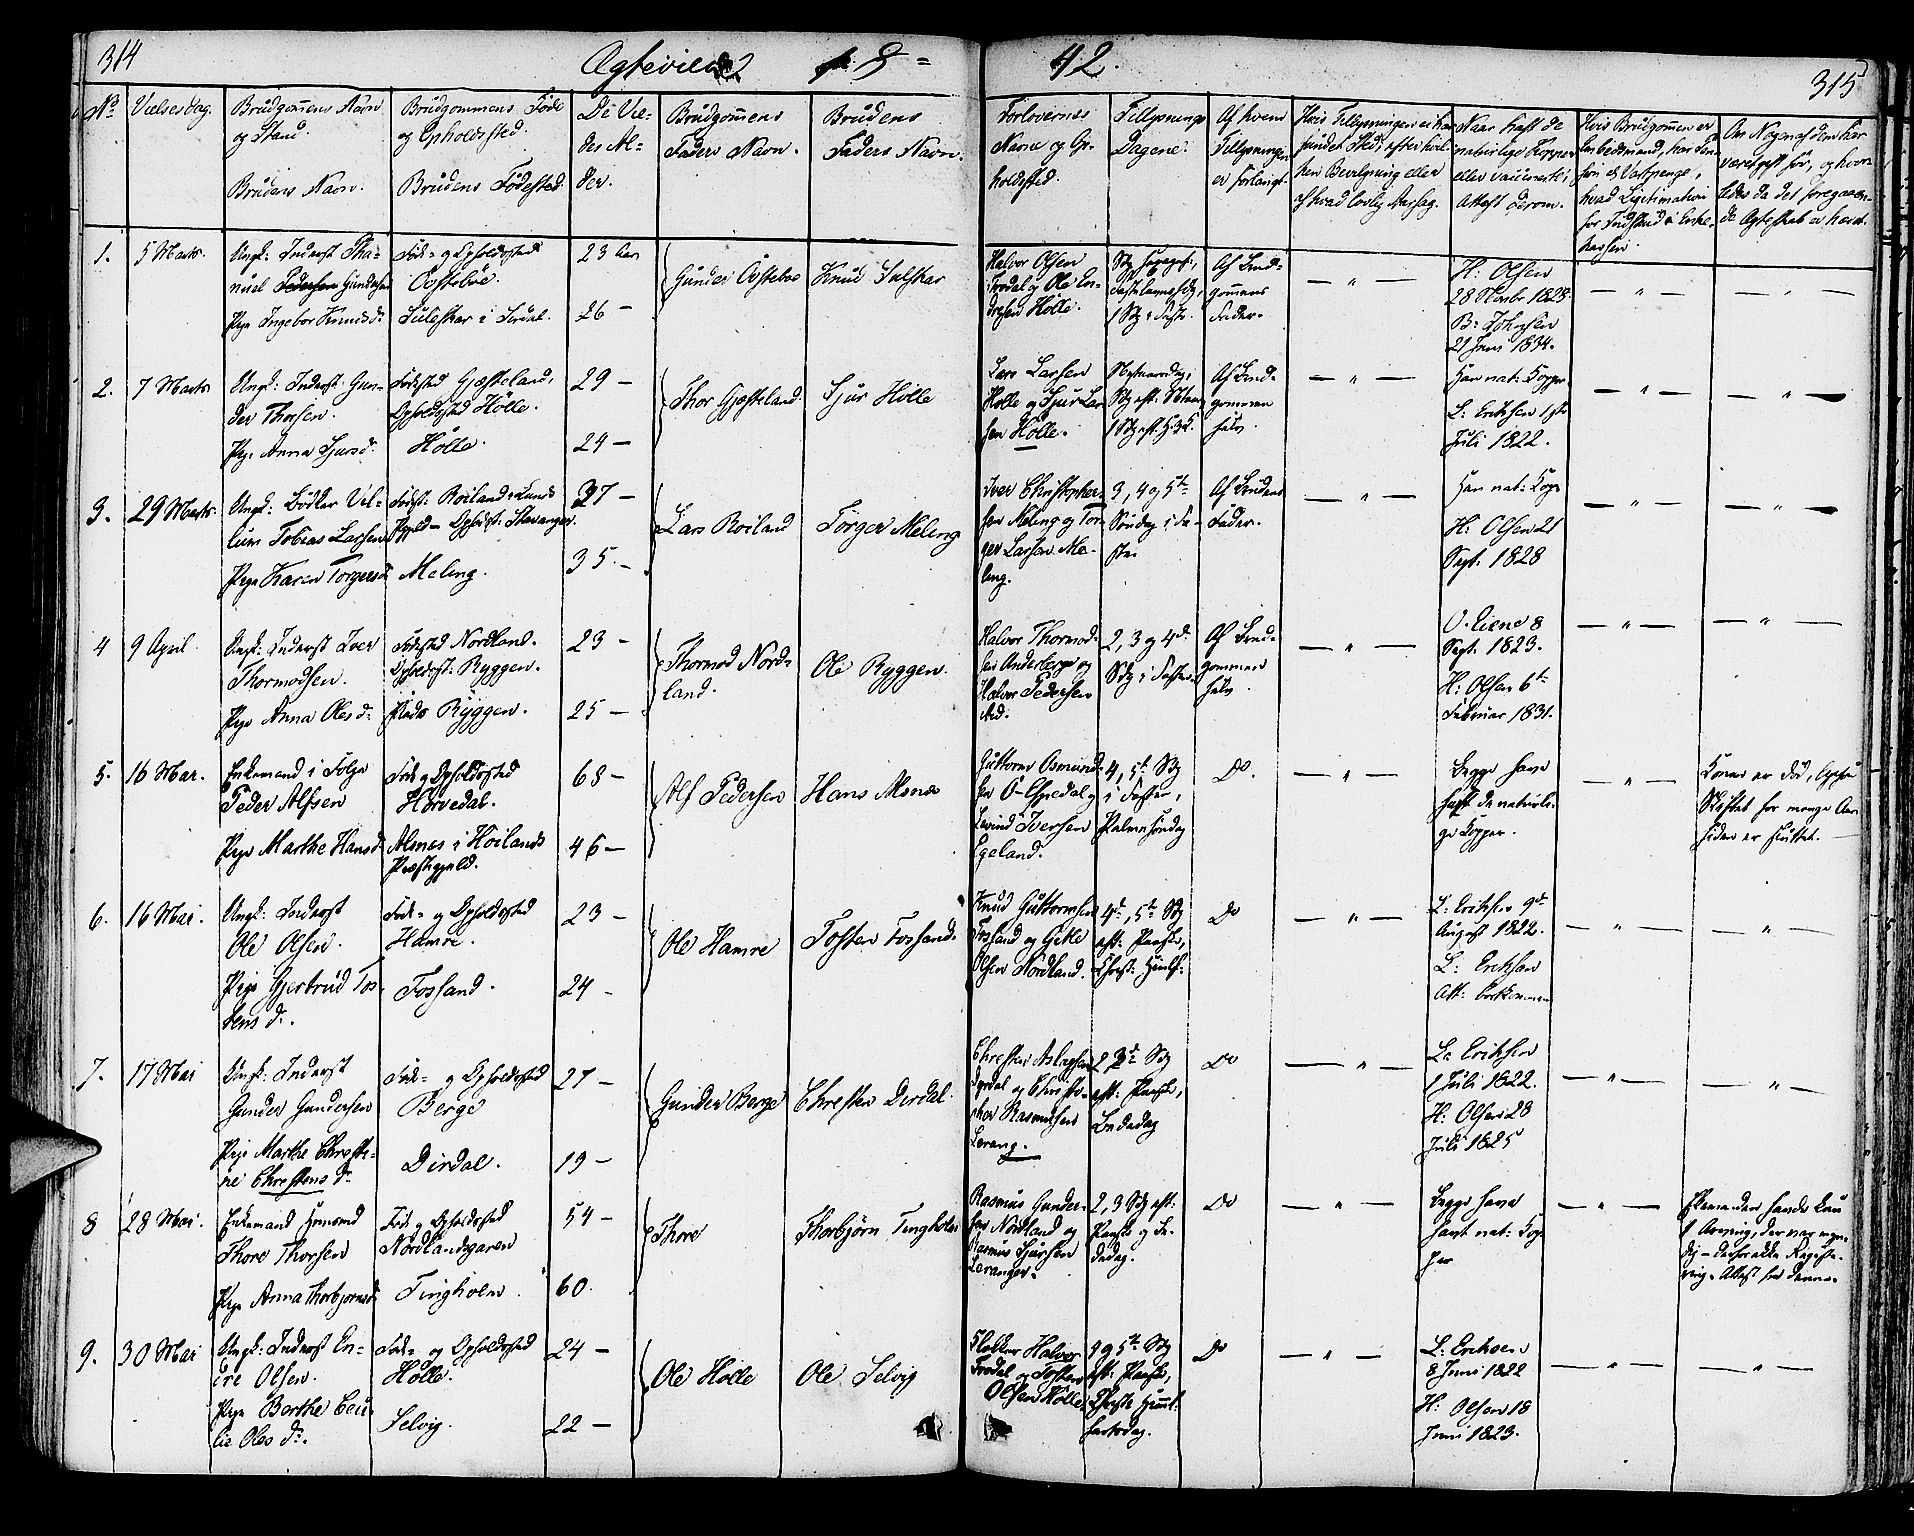 314
Ægteviede 18=
42.
315
No
Vielses Dag.
Brudgommens Navn
og Stand.
Brudens Navn.
Brudgommens Føde
og Opholdssted.
Brudens Fødested
De Vie-
des Al-
der.
Brudgommens
Faders Navn.
Brudens
Faders Navn.
Forlovernes
Navne og Op-
holdssted.
Tillysnings
Dagene.
Af hvem
Tillysningen
er forlangt.
Hvis Tillysningen ei har
fundet Sted; efter hvil-
ken Bevilgning eller
af hvad lovlig Aarsag.
Naar haft de
naturlige Kopper
eller vaccineret;
Attest derom.
Hvis Brudgommen er
Embedsmand, har For-
hvad Legitimation
for Indskud i Enke-
kassen.
Om Nogen af dem har
været gift før, og hvor-
ledes da det foregaaen-
de Ægteskab er hævet
1.
5 Marts.
Ungk: Inderst Tha-
nuel Pedersen Gundersen
Pige Ingebor Knudsd:
Føde- og Opholdssted
Ovstebøe.
Suleskar i Sirdal.
23 Aar
26 –
Gunder Ovstebø
Knud Sulskar
Halvor Olsen
Frodal og Ole En-
dresen Hølle.
Fastelavns Sdg,
1 Sdg i Faste.
Af Brud-
gommens
Fader.
– " –
H: Olsen
28 Octbr 1828.
B: Johnsen
21 Juni 1834.
– " –
– " –
2.
7 Marts
Ungk: Inderst Gun-
der Thorsen.
Pige Anna Sjursd.
Fødested Gjesteland,
Opholdssted Hølle.
Hølle.
29 –
24 –
Thor Gjesteland.
Sjur Hølle
Lars Larsen
Hølle og Sjur Lar
sen Hølle.
Nytaarsdag,
1 Sdg eft. H: 3 K.
Af Brud-
gommen
selv.
– " –
Han nat: Kopper
L: Eriksen 1ste
Juli 1822.
– " –
– " –
3.
29 Marts
Ungk: Bødker Vil-
lum Tobias Larsen
Pige Karen Torgersd
Fødst: Roiland i Lunds
Pgjeld – Ophdst: Stavanger.
Meling.
37 –
35. –
Lars Roiland
Torger Meling
Iver Christopher-
sen Meling og Tor-
ger Larsen Me-
ling.
3, 4 og 5te
Søndag i Fa-
ste
Af Brudens
Fader.
– " –
Han nat: Kop
H: Olsen 21
Sept. 1828
– " –
– " –
4
9 April.
Ungk: Inderst Iver
Thormodsen.
Pige Anna Olesd:
Fødested Nordland.
Opholdsst: Ryggen.
Pladsd Ryggen.
23 –
25 –
Thormod Nord-
land.
Ole Ryggen.
Halvor Thormod-
sen Anderberge og
Halvor Pedersen
2, 3 og 4de
Sdg i Faste
Af Brud-
gommen
selv.
– " –
Sept. 1823.
H: Olsen 6te
Februar 1831.
– " –
– " –
5.
16 Mar.
Enkemand i Folge
Peder Alfsen
Pige Marthe Hansd.
Føde og Opholdssted
Hørvedal.
Alsnes i Høilands
Præstegjeld.
68 –
46 –
Alf Pedersen
Hans Alsnes
Guttorm Osmund-
sen O-Espedal og
Eevind Iversen
Egeland.
4, 5te Sdg
i Faste,
Palmesøndag
Do.
– " –
Begge have
haft de naturli-
ge Kopper.
– " –
Konen er død,
Skiftet for mange Aar
siden er sluttet.
6.
16 Mai.
Ungk: Inderst
Ole Olsen.
Pige Gjertrud Tos-
tens d:.
Føde- og Opholdssted
Hamre.
Fossand.
23 –
24 –
Ole Hamre
Tosten Fossand.
Knud Guttormsen
Fossand og Gitle
Olsen Nordland.
4de, 5te Sdg
eft: Paaske,
Christ: Himlf:
Do
– " –
L: Eriksen 9de
August 1822.
L: Eriksen
Att: bortkommen
– " –
– " –
7.
17 Mai
Ungk: Inderst
Gunder Gundersen
Pige Marthe Christi-
ne Christens d:
Føde- og Opholdssted
Berge
Dirdal.
27 –
19 –
Gunder Berge
Christen Dirdal.
Christen Aslagsen
Dirdal og Christo-
pher Rasmusen
Lerang.
2 3de Sdg
eft: Paaske,
Bededag
Do
– " –
L: Eriksen
1 Juli 1822.
H: Olsen 28
Juli 1825
– " –
– " –
8
28 Mai.
Enkemand Huusmd
Thore Thorsen
Pige Anna Thorbjørnsd
Føde og Opholdssted
Nordlandsgaren
Tingholm.
54 –
60.
Thore
Thorbjørn Tingholm
Rasmus Gunder-
sen Nordland og
Rasmus Sjursen
Leranger.
2, 3 Sdg eft:
Paaske og Be-
dedag.
Do
– " –
Begge have
havt nat: Kop
per
– " –
Ekemanden havde kun
1 Arving, der var myn-
dig –
Attest for denne.
9.
30 Mai
Ungk: Inderst En-
dre Olsen.
Pige Berthe Ceci-
lie Oles d:.
Føde- og Opholdssted
Hølle.
Selvig.
24 –
22 –
Ole Hølle
Ole Selvig
Klokker Halvor
Frodal og Tosten
Olsen Hølle.
og 5te Sdg
eft: Paaske,
Christi Himmel-
fartsdag.
Do
– " –
L: Eriksen
8 Juni 1822
H: Olsen 18
Juni 1823.
– " –
– " –